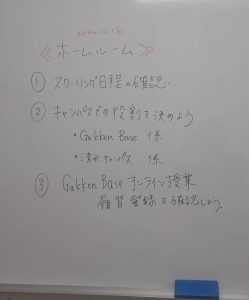 ≪ホームルーム≫
① スクーリング日程の確認
② キャンパスでの役割を決めよう
・Gakken Base 係
・清水キャンパス 係
③ Gakken Base オンライン授業
履習登録を確認しよう。